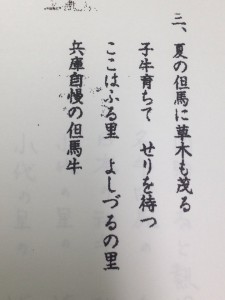 三、夏の但馬に草木も茂る
子牛育ちて　せりを待つ
ここはふる里　よしづるの里
兵庫自慢の但馬牛